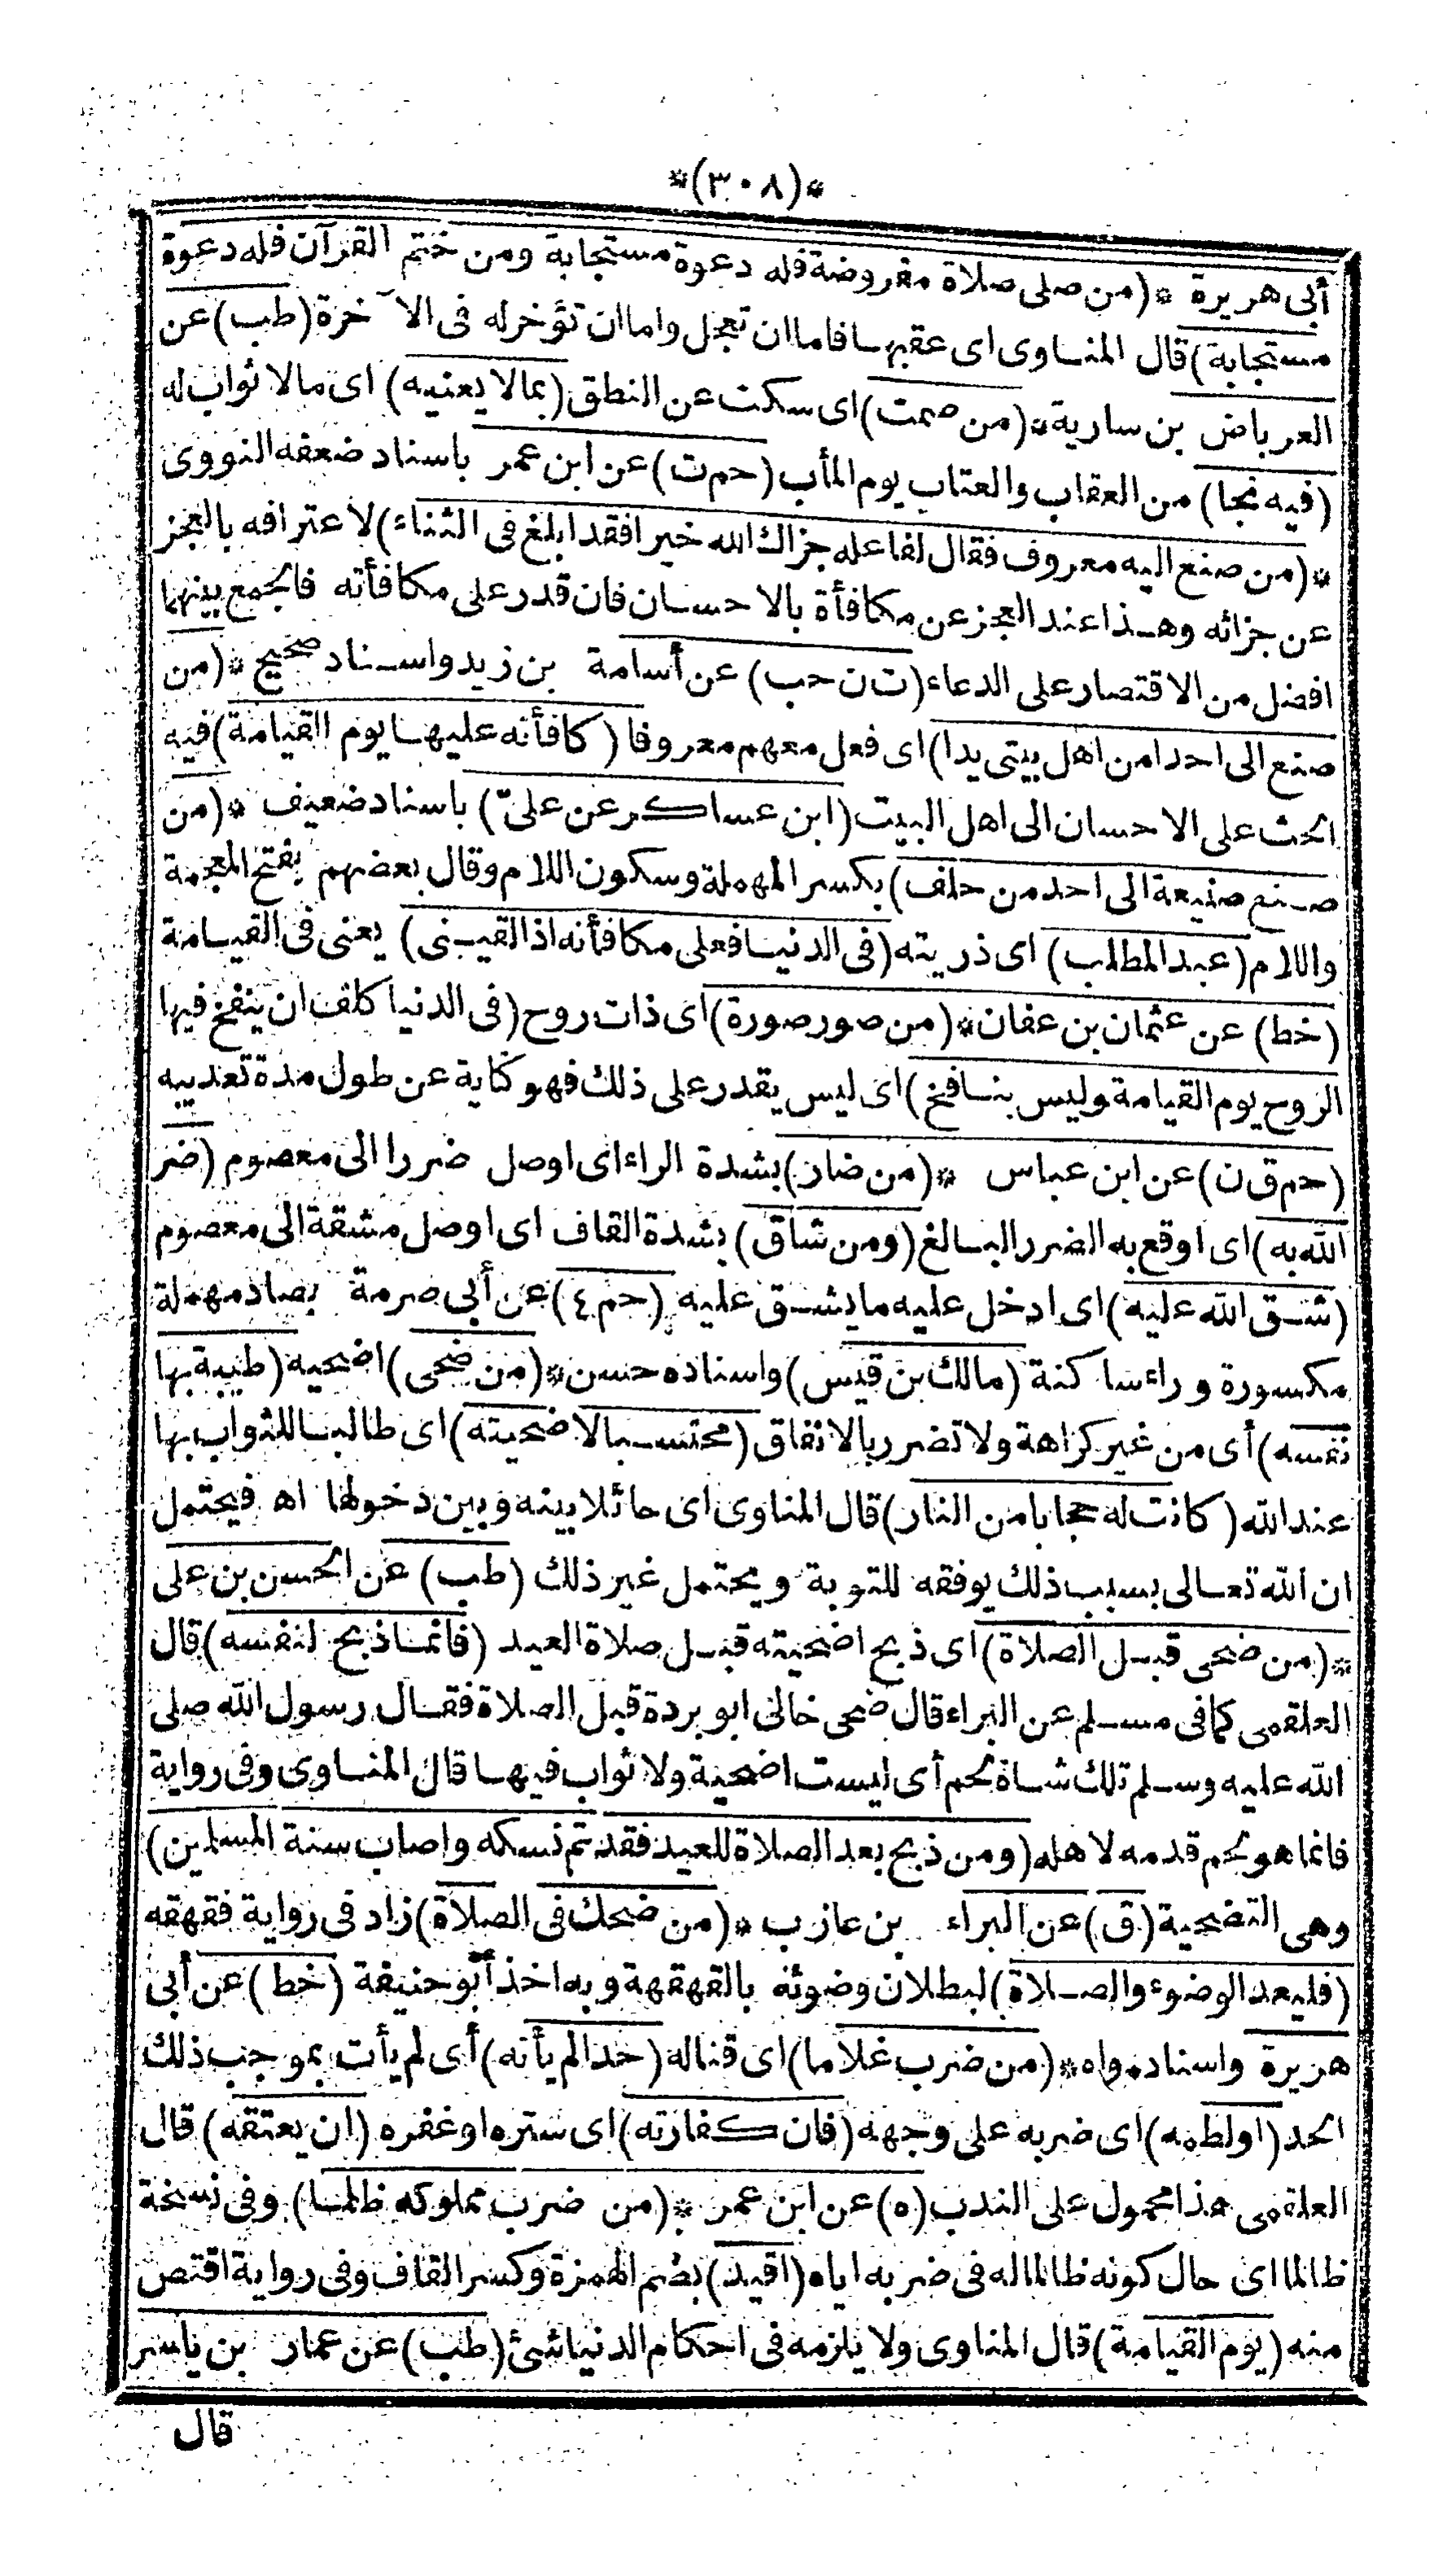 *(٣٠٨)*
أبى هريرة *(من صلى صلاة مفروضة فله دعوة مستجابة ومن ختم القرآن فله دعوة
مستجابة) قال المناوى اى عقبها فاما ان تعجل واما ان تؤخر له فى الآخرة (طب) عن
العرباض بن سارية *(من صمت) اى سكت عن النطق (بما لا يعنيه) اى مالا ثواب له
(فيه نجا) من العقاب والعتاب يوم المأب (حم ت) عن ابن عمر باسناد ضعفه النووى
*(من صنع اليه معروف فقال لفاعله جزاك الله خيرا فقد ابلغ فى الثناء) لاعترافه بالعجز
عن جزائه وهذا عند العجز عن مكافأة بالاحسان فان قدر على مكافأته فالجمع بينهما
افضل من الاقتصار على الدعاء (ت ن حب) عن أسامة بن زيد واسناد صحيح *(من
صنع الى احد من اهل بيتى يدا) اى فعل معهم معروفا (كافأنه عليها يوم القيامة) فيه
الحث على الاحسان الى اهل البيت (ابن عساكر عن علىّ) باسناد ضعيف *(من
صنع صنيعة الى احد من حلف) بكسر المهملة وسكون اللام وقال بعضهم بفتح المعجمة
واللام (عبد المطلب) اى ذريته (فى الدنيا فعلى مكافأنه اذا لقينى) يعنى فى القيامة
(خط) عن عثمان بن عفان *(من صور صورة) اى ذات روح (فى الدنيا كلف ان ينفخ فيها
الروح يوم القيامة وليس بنافخ) اى ليس يقدر على ذلك فهو كناية عن طول مدة تعذيبه
(حم ق ن) عن ابن عباس *(من ضار) بشدة الراء اى اوصل ضررا الى معصوم (ضر
الله به) اى اوقع به الضرر البالغ (ومن شاق) بشدة القاف اى اوصل مشقة الى معصوم
(شق الله عليه) اى ادخل عليه ما يشق عليه (حم ٤) عن أبى صرمة بصاد مهملة
مكسورة وراء ساكنة (مالك بن قيس) واسناده حسن *(من ضحى) اضحيه (طيبة بها
نفسه) أى من غير كراهة ولا تضرر بالانفاق (محتسبا لاضحيته) اى طالبا للثواب بها
عند الله (كانت له حجابا من النار) قال المناوى اى حائلا بينه وبين دخولها اه فيحتمل
ان الله تعالى بسبب ذلك يوفقه للتوبة ويحتمل غير ذلك (طب) عن الحسن بن على
*(من ضحى قبل الصلاة) اى ذبح اضحيته قبل صلاة العيد (فانما ذبح لنفسه) قال
العلقمى كما فى مسلم عن البراء قال ضحى خالى ابو بردة قبل الصلاة فقال رسول الله صلى
الله عليه وسلم تلك شاة لحم أى ليست اضحية ولا ثواب فيها قال المناوى وفى رواية
فانما هو لحم قدمه لاهله (ومن ذبح بعد الصلاة للعيد فقد تم نسكه واصاب سنة المسلمين)
وهى التضحية (ق) عن البراء بن عازب *(من ضحك فى الصلاة) زاد فى رواية فقهقه
(فليعد الوضوء والصلاة) لبطلان وضوئه بالقهقهة وبه اخذ أبو حنيفة (خط) عن أبى
هريرة واسناده واه *(من ضرب غلاما) اى قناله (حدا لم يأته) أى لم يأت بموجب ذلك
الحد (او لطمه) اى ضربه على وجهه (فان كفارته) اى ستره او غفره (ان يعتقه) قال
العلقمى هذا محمول على الندب (ه) عن ابن عمر *(من ضرب مملوكه ظلما) وفى نسخة
ظالما اى حال كونه ظالما له فى ضربه اياه (اقيد) بضم الهمزة وكسر القاف وفى رواية اقتص
منه (يوم القيامة) قال المناوى ولا يلزمه فى احكام الدنيا شئ (طب) عن عمار بن ياسر
قال